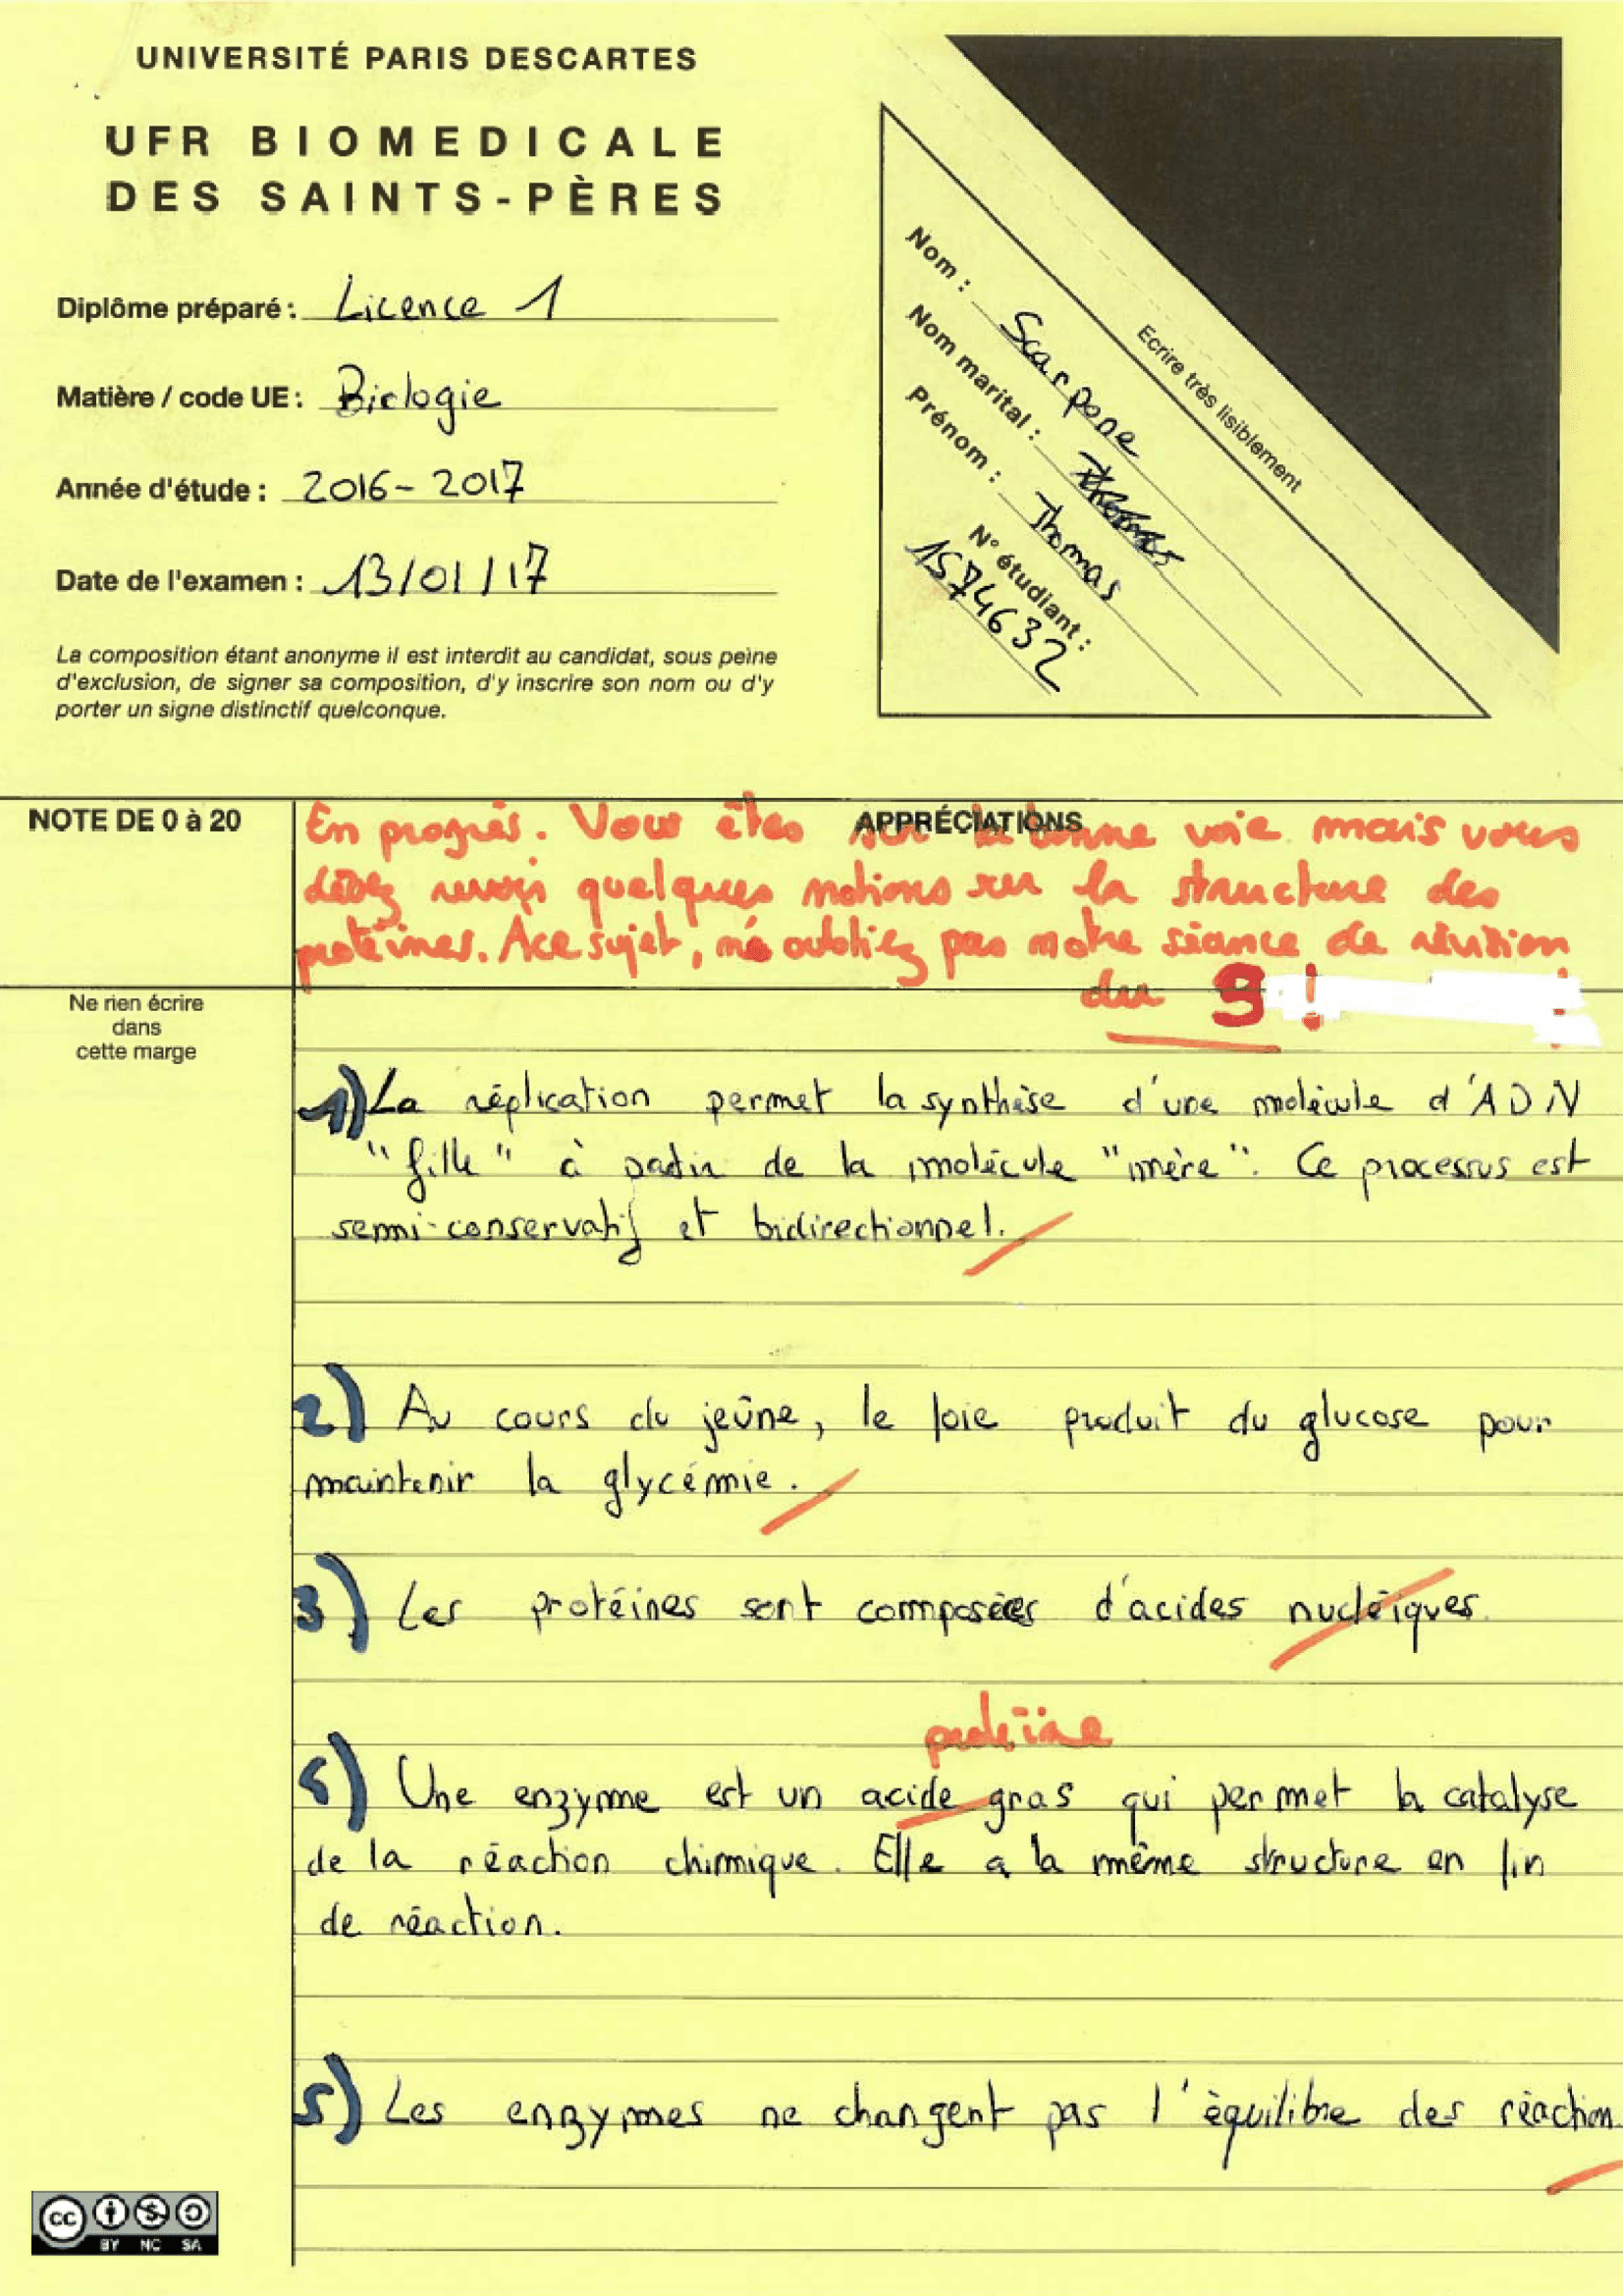 UNIVERSITÉ PARIS DESCARTES
UFR BIOMEDICALE
DES SAINTS-PÈRES
Diplôme préparé : Licence 1
Matière / code UE : Biologie
Année d'étude : 2016-2017
Date de l'examen : 13/01/17
La composition étant anonyme il est interdit au candidat, sous peine
d'exclusion, de signer sa composition, d'y inscrire son nom ou d'y
porter un signe distinctif quelconque.
Ecrire très lisiblement
Nom : Scarpone
Nom marital : Thomas
Prénom : Thomas
N° étudiant :
1574632
NOTE DE 0 à 20
APPRÉCIATIONS
En progrès. Vous êtes sur la bonne voie mais vous
devez revoir quelques notions sur la structure des
protéines. A ce sujet, n'oubliez pas notre séance de révision
du 9 !
Ne rien écrire
dans
cette marge
1) La réplication permet la synthèse d'une molécule d'ADN
"fille" à partir de la molécule "mère". Ce processus est
semi-conservatif et bidirectionnel.
2) Au cours du jeûne, le foie produit du glucose pour
maintenir la glycémie.
3) Les protéines sont composées d'acides nucléiques.
protéine
4) Une enzyme est un acide gras qui permet la catalyse
de la réaction chimique. Elle a la même structure en fin
de réaction.
5) Les enzymes ne changent pas l'équilibre des réaction.
cc
BY NC SA